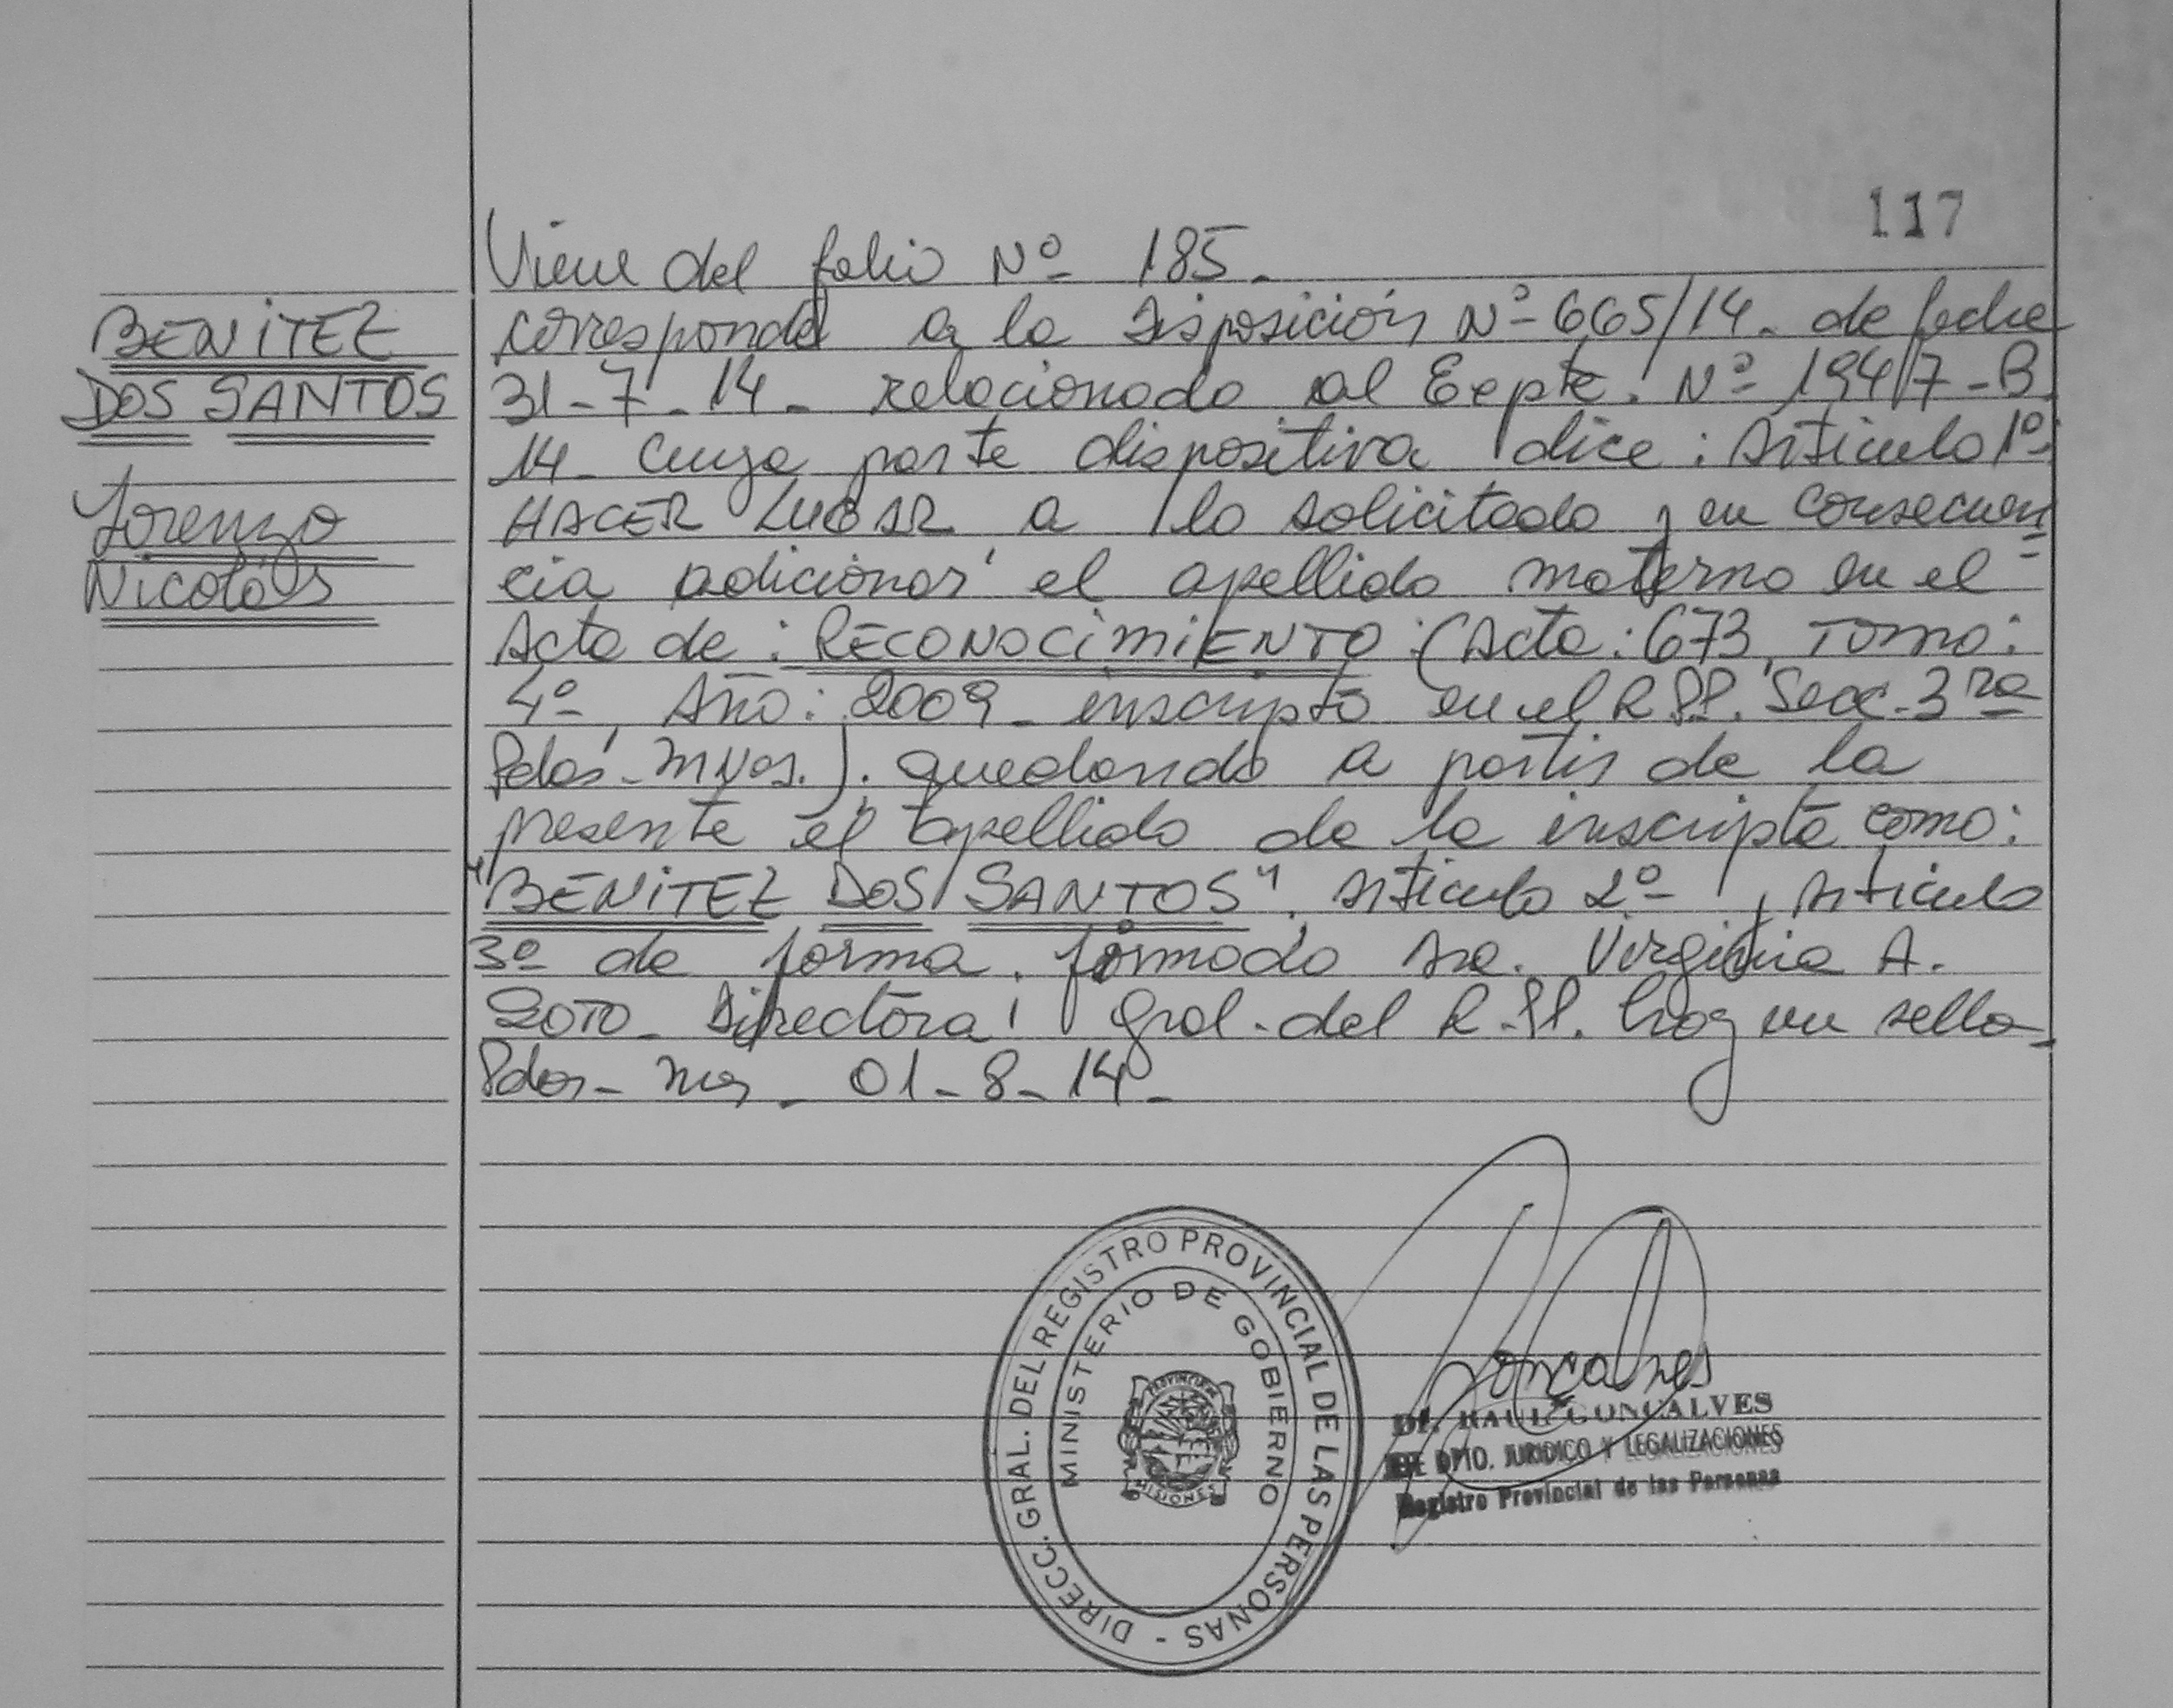 117
Viene del folio Nº 185.
BENITEZ
DOS SANTOS
Lorenzo
Nicolás
corresponde a la Disposición Nº 665/14. de fecha
31-7-14- relacionado al Expte. Nº 1947-B
14- cuya parte dispositiva dice: Artículo 1º:
HACER LUGAR a lo solicitado y en consecuen
cia adicionar el apellido materno en el
Acta de: RECONOCIMIENTO: (Acta: 673, Tomo:
4º, Año: 2009- inscripto en el R.P.P. Secc. 3ra
Pdas-Mnes.). quedando a partir de la
presente el apellido de la inscripta como:
"BENITEZ DOS SANTOS". Artículo 2º, Artículo
3º de forma. firmado Dra. Virginia A.
SOTO- Directora Gral. del R.P.P. hay un sello-
Pdas- Mnes- 01-8-14-
DIRECC. GRAL. DEL REGISTRO PROVINCIAL DE LAS PERSONAS -
MINISTERIO DE GOBIERNO
PROVINCIA DE
MISIONES
Goncalves
Dr. RAUL GONCALVES
JEFE DPTO. JURIDICO Y LEGALIZACIONES
Registro Provincial de las Personas